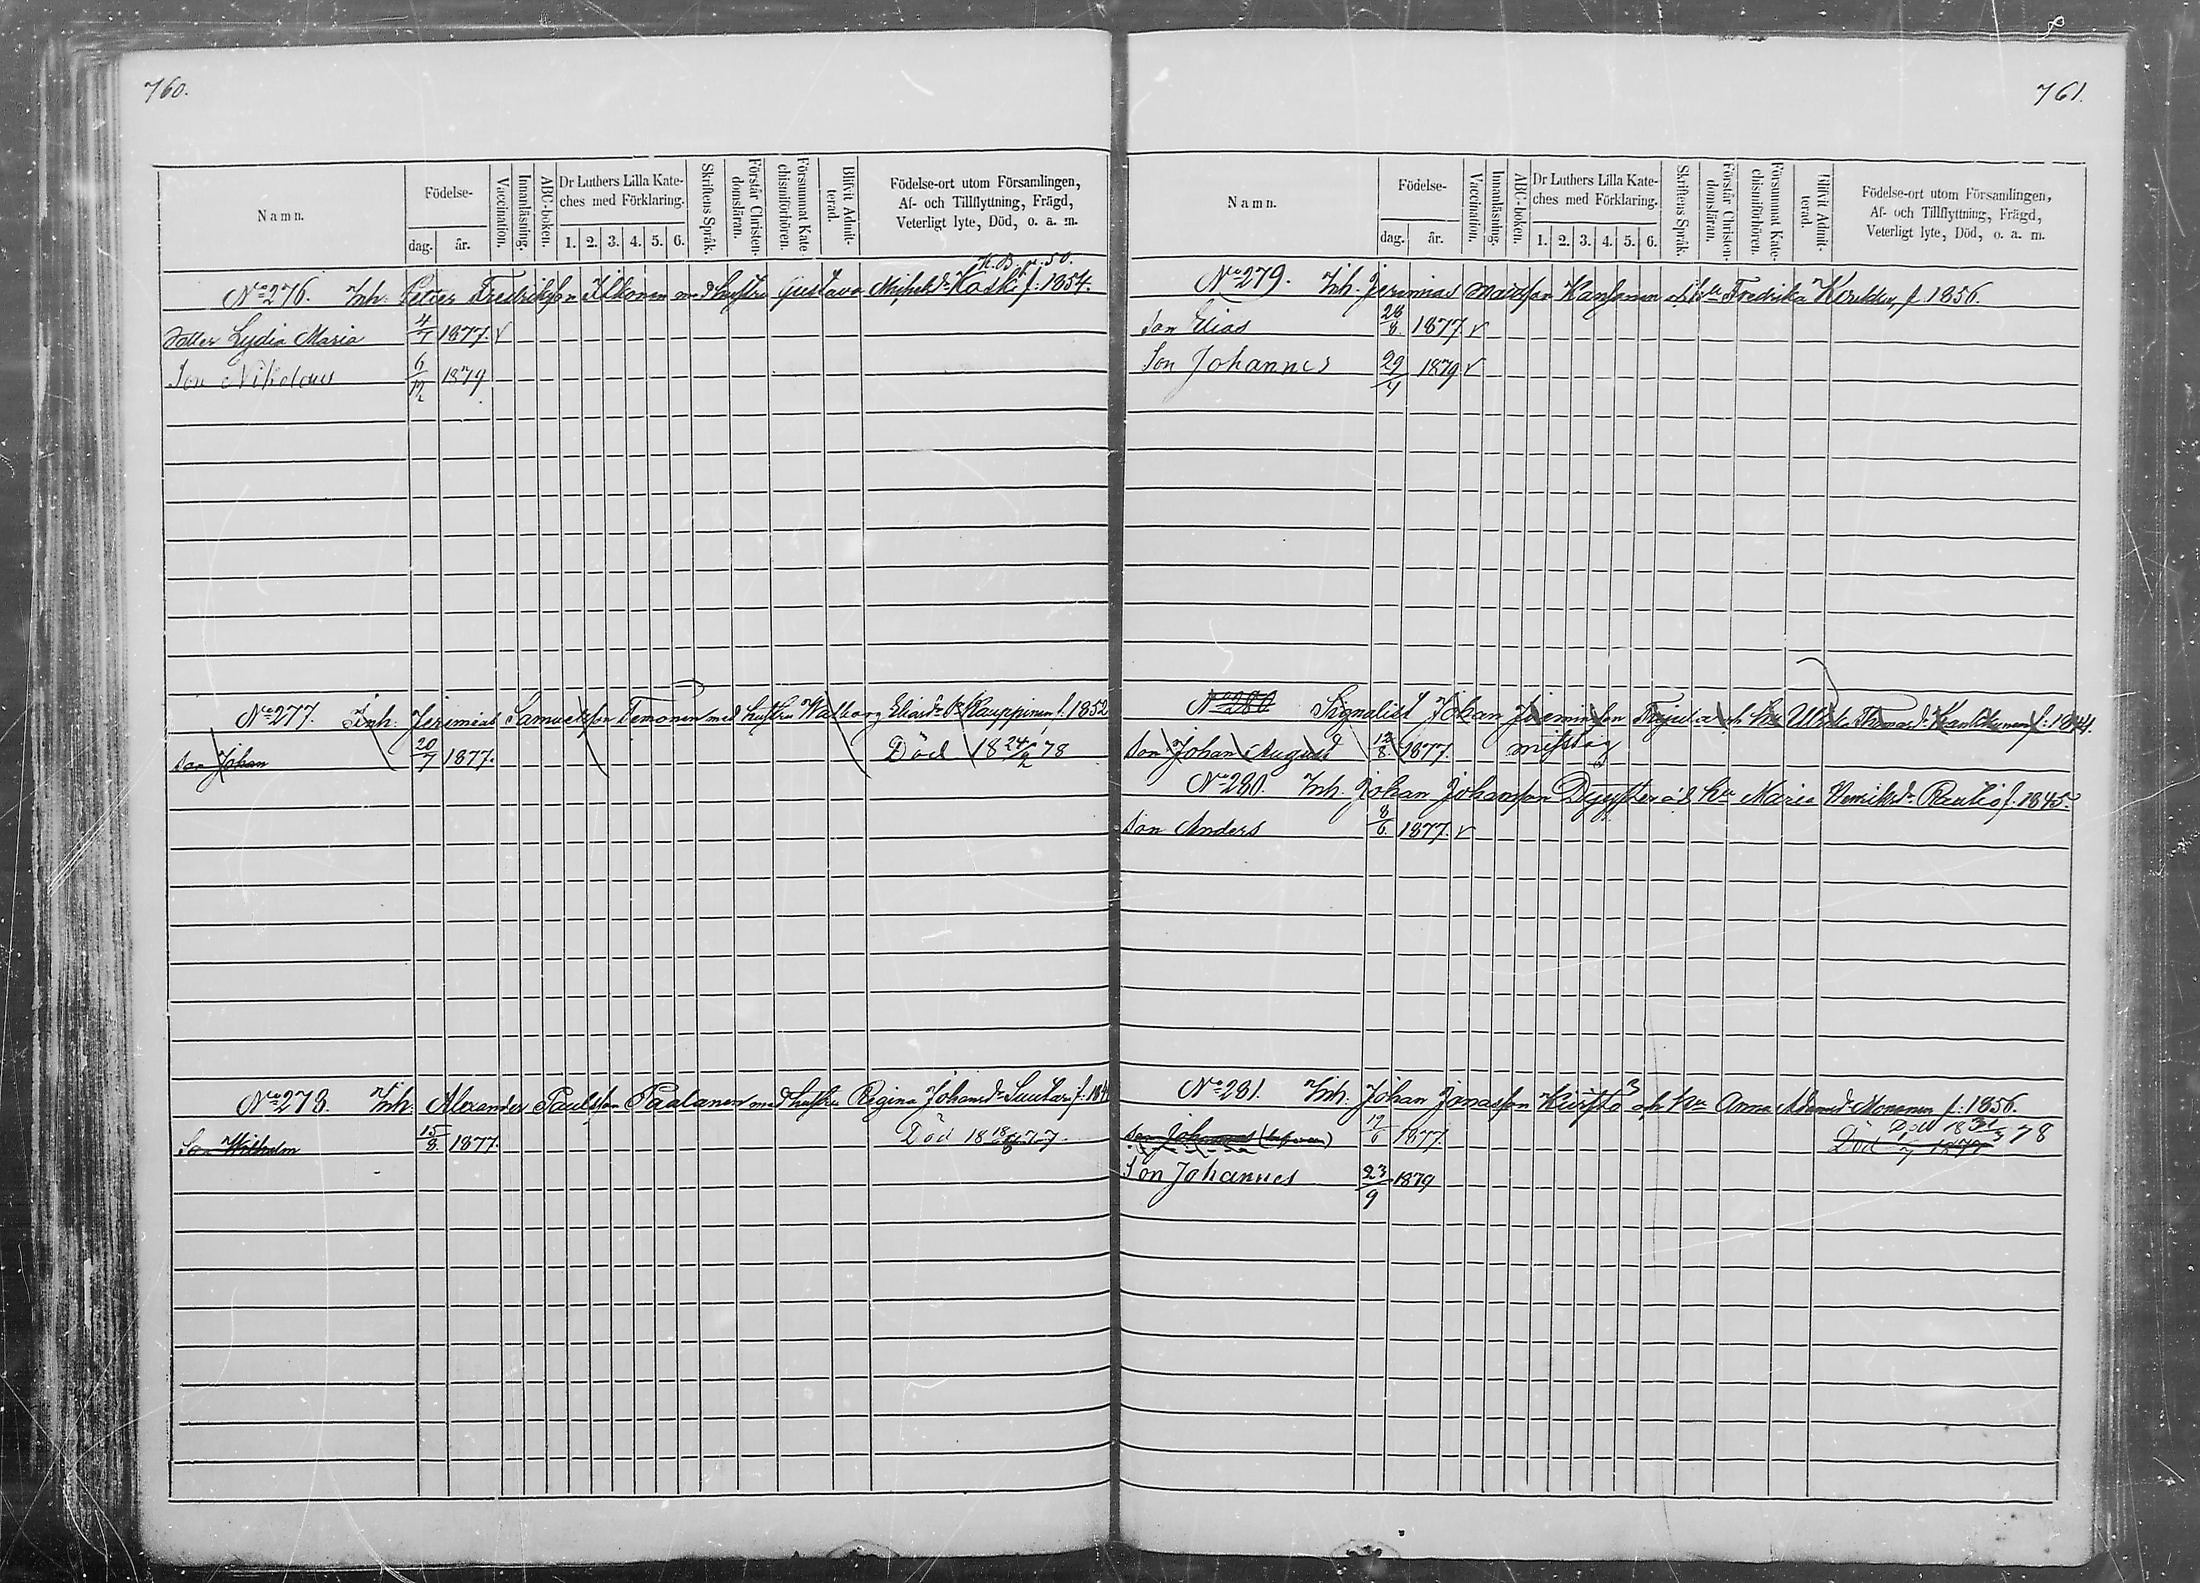 760.
Namn.
Födelse-
dag.
år.
Vaccination.
Innanläsning.
ABC-boken.
Dr Luthers Lilla Kate-
ches med Förklaring.
1. 2. 3. 4. 5. 6.
Skriftens Språk.
Förstår Christen-
domsläran.
Försummat Kate-
chismiförhören.
Blifvit Admit-
terad.
Födelse-ort utom Församlingen,
Af- och Tillflyttning, Frägd,
Veterligt lyte, Död, o. a. m.
K. B. p. 50.
No 276. Inh. Petter Fredriksson Ikonen med hustru Gustava Michelsdr Koski f. 1854.
Dotter Lydia Maria 4/7 1877. v
Son Nikolaus 6/12 1879.
No 277. Inh. Jeremias Samuelsson Temonen med hustru Walborg Eliasdr Kauppinen f. 1852
Son Johan 20/7 1877. Död 18 24/2 78
No 278. Inh. Alexander Paulsson Paalanen med hustru Regina Johansdr Sautari f.
Son Wilhelm 15/8 1877. Död 18 18/8 77.
761.
Namn.
Födelse-
dag.
år.
Vaccination.
Innanläsning.
ABC-boken.
Dr Luthers Lilla Kate-
ches med Förklaring.
1. 2. 3. 4. 5. 6.
Skriftens Språk.
Förstår Christen-
domsläran.
Försummat Kate-
chismiförhören.
Blifvit Admit-
terad.
Födelse-ort utom Församlingen,
Af- och Tillflyttning, Frägd,
Veterligt lyte, Död, o. a. m.
No 279. Inh. Jeremias Matsson Kansanen o. hu Fredrika f. 1856.
Son Elias 28/8 1877. v
Son Johannes 29/4 1879 v
No 280 Signalist Johan Jeremiasson och hu Ulrika Thomasdr f. 1844.
Son Johan August 12/8 1877. misstag
No 280. Inh. Johan Johansson hu Maria Henriksdr Rautio f. 1845.
Son Anders 8/6 1877. v
No 281. Inh. Johan Jonasson och hu Anna Adamsdr Mononen f. 1856.
Son Johannes 17/6 1877. Död 18 31/3 78
Son Johannes 23/9 1879